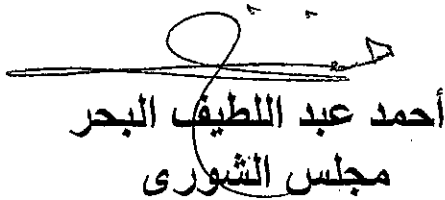 أحمد عبد اللطيف البحر
مجلس الشورى